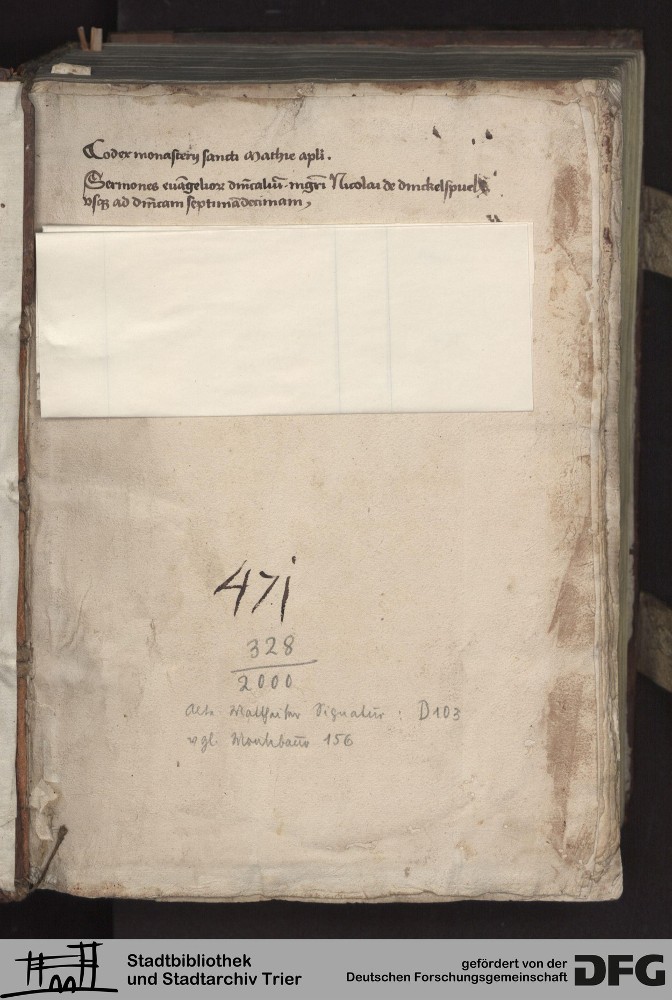 Codex monasterij sancti Mathie apli.
Sermones euāgelioꝝ dn̄icaliū mgr̄i Nicolai de dinckelspuel
vsqꝫ ad dn̄icam septimādecimam,
47j
328
2000
Alte Mattheiser Signatur: D103
vgl. Montebaur 156
Stadtbibliothek
und Stadtarchiv Trier
gefördert von der
Deutschen Forschungsgemeinschaft
DFG